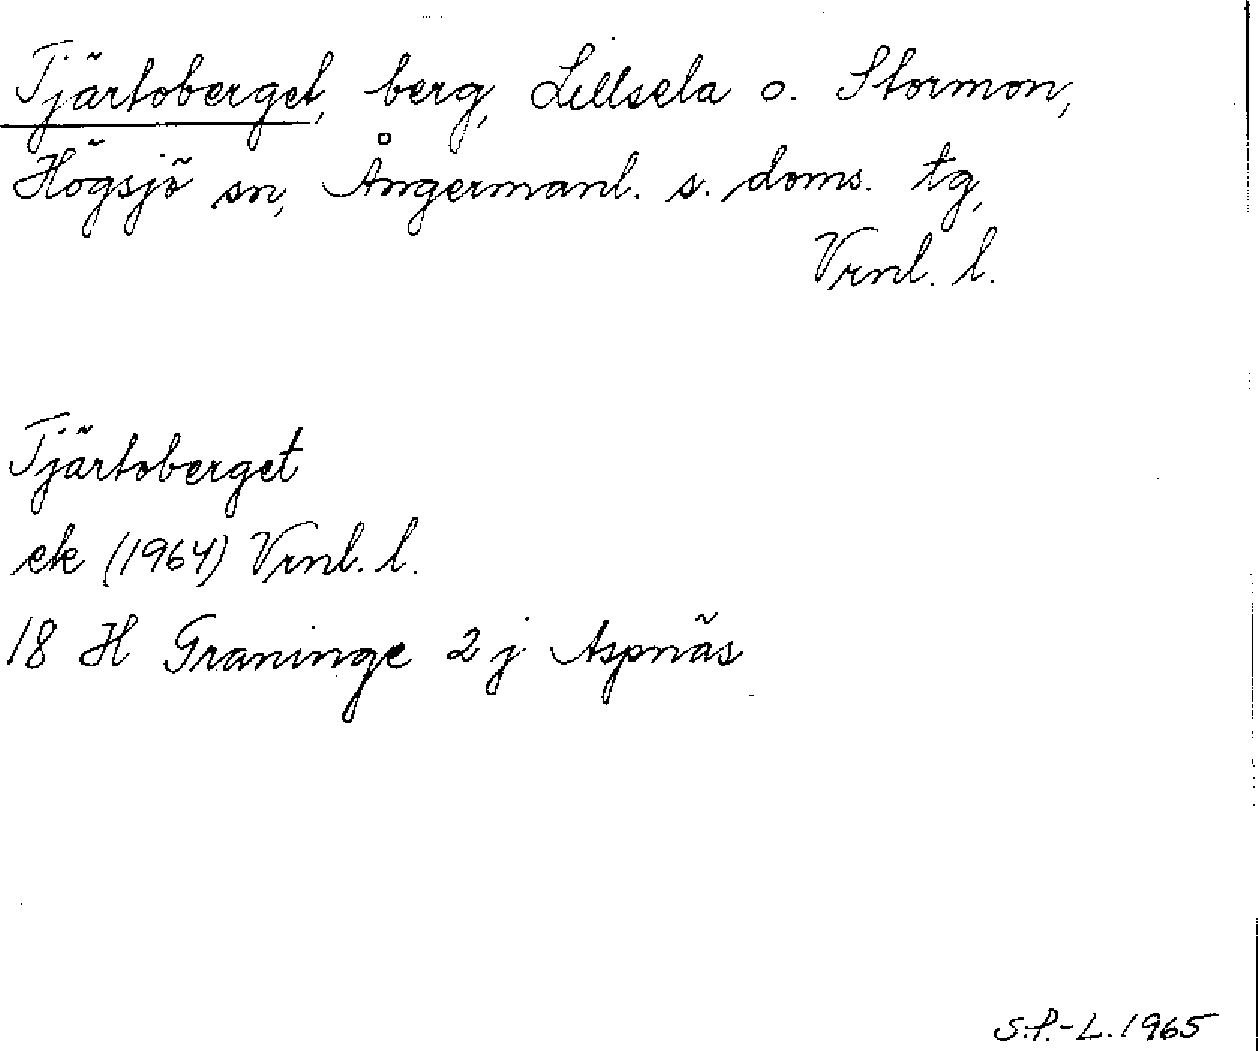 Tjärtoberget, berg, Lillsela o. Stormon,
Högsjö sn, Ångermanl. s. doms. tg,
Vrnl. l.
Tjärtoberget
ek (1964) Vrnl. l.
18 H Graninge 2 j Aspnäs
S.P.-L. 1965